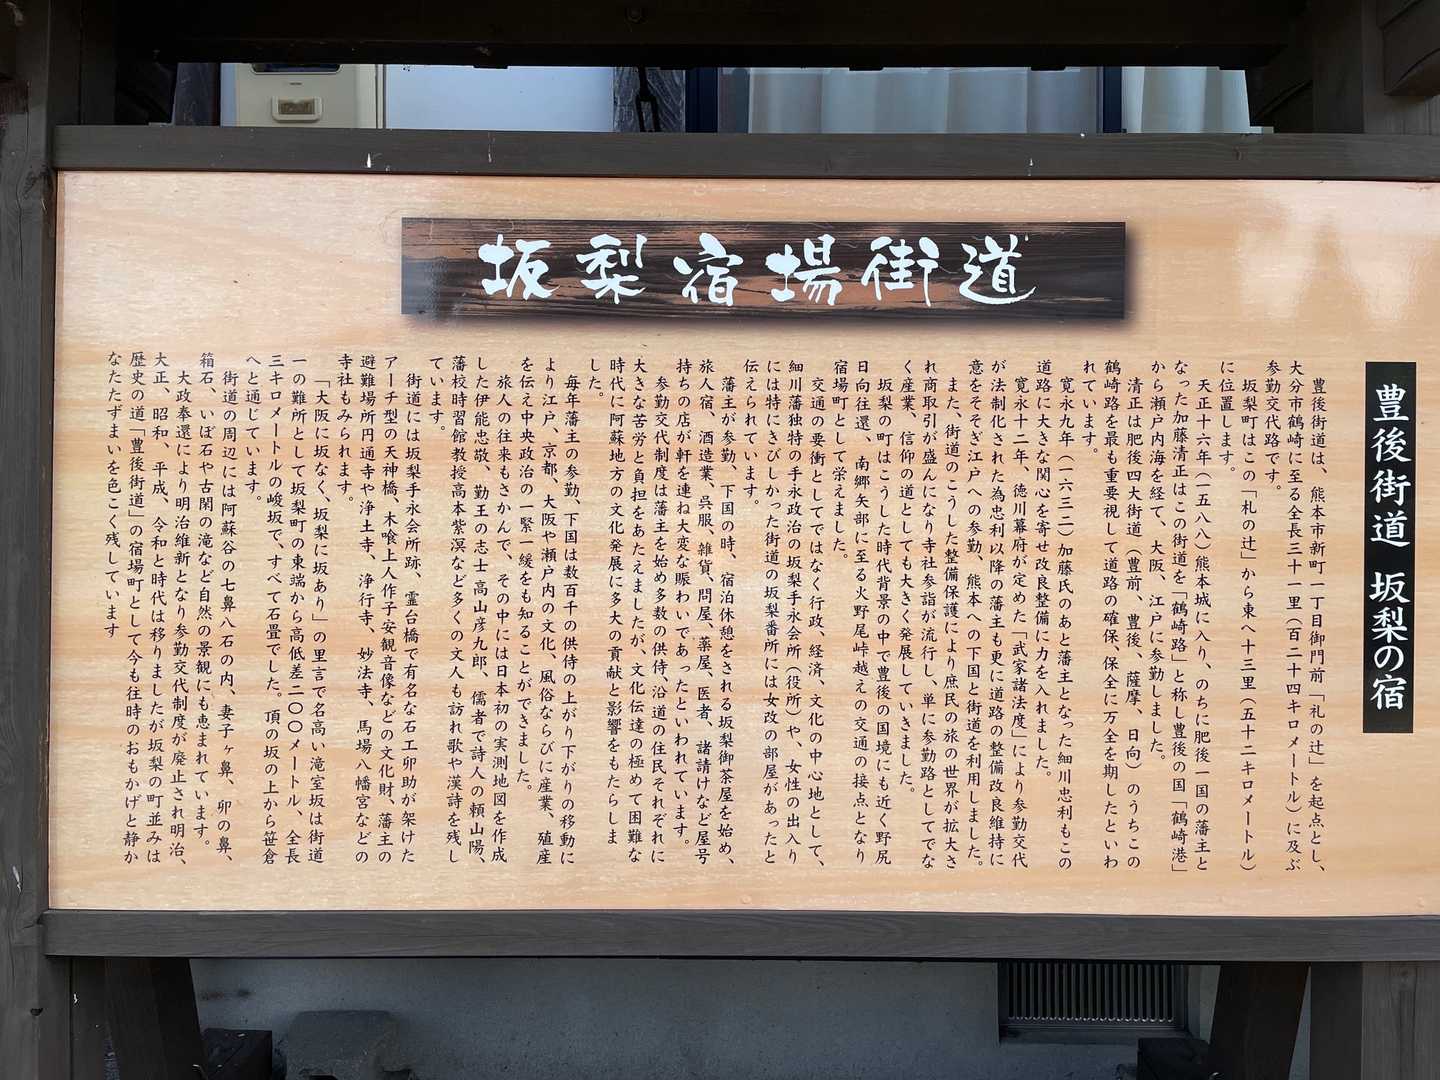 坂梨宿場街道
豊後街道 坂梨の宿
豊後街道は、熊本市新町一丁目御門前「札の辻」を起点とし、
大分市鶴崎に至る全長三十一里（百二十四キロメートル）に及ぶ
参勤交代路です。
坂梨町はこの「札の辻」から東へ十三里（五十二キロメートル）
に位置します。
天正十六年（一五八八）熊本城に入り、のちに肥後一国の藩主と
なった加藤清正はこの街道を「鶴崎路」と称し豊後の国「鶴崎港」
から瀬戸内海を経て、大阪、江戸に参勤しました。
清正は肥後四大街道（豊前、豊後、薩摩、日向）のうちこの
鶴崎路を最も重要視して道路の確保、保全に万全を期したといわ
れています。
寛永九年（一六三二）加藤氏のあと藩主となった細川忠利もこの
道路に大きな関心を寄せ改良整備に力を入れました。
寛永十二年、徳川幕府が定めた「武家諸法度」により参勤交代
が法制化された為忠利以降の藩主も更に道路の整備改良維持に
意をそそぎ江戸への参勤、熊本への下国と街道を利用しました。
また、街道のこうした整備保護により庶民の旅の世界が拡大さ
れ商取引が盛んになり寺社参詣が流行し、単に参勤路としてでな
く産業、信仰の道としても大きく発展していきました。
坂梨の町はこうした時代背景の中で豊後の国境にも近く野尻
日向往還、南郷矢部に至る火野尾峠越えの交通の接点となり
宿場町として栄えました。
交通の要衝としてではなく行政、経済、文化の中心地として、
細川藩独特の手永政治の坂梨手永会所（役所）や、女性の出入り
には特にきびしかった街道の坂梨番所には女改の部屋があったと
伝えられています。
藩主が参勤、下国の時、宿泊休憩をされる坂梨御茶屋を始め、
旅人宿、酒造業、呉服、雑貨、問屋、薬屋、医者、諸請けなど屋号
持ちの店が軒を連ね大変な賑わいであったといわれています。
参勤交代制度は藩主を始め多数の供侍、沿道の住民それぞれに
大きな苦労と負担をあたえましたが、文化伝達の極めて困難な
時代に阿蘇地方の文化発展に多大の貢献と影響をもたらしま
した。
毎年藩主の参勤、下国は数百千の供侍の上がり下がりの移動に
より江戸、京都、大阪や瀬戸内の文化、風俗ならびに産業、殖産
を伝え中央政治の一緊一緩をも知ることができました。
旅人の往来もさかんで、その中には日本初の実測地図を作成
した伊能忠敬、勤王の志士高山彦九郎、儒者で詩人の頼山陽、
藩校時習館教授高本紫溟など多くの文人も訪れ歌や漢詩を残し
ています。
街道には坂梨手永会所跡、霊台橋で有名な石工卯助が架けた
アーチ型の天神橋、木喰上人作子安観音像などの文化財、藩主の
避難場所円通寺や浄土寺、浄行寺、妙法寺、馬場八幡宮などの
寺社もみられます。
「大阪に坂なく、坂梨に坂あり」の里言で名高い滝室坂は街道
一の難所として坂梨町の東端から高低差二〇〇メートル、全長
三キロメートルの峻坂で、すべて石畳でした。頂の坂の上から笹倉
へと通じています。
街道の周辺には阿蘇谷の七鼻八石の内、妻子ヶ鼻、卯の鼻、
箱石、いぼ石や古閑の滝など自然の景観にも恵まれています。
大政奉還により明治維新となり参勤交代制度が廃止され明治、
大正、昭和、平成、令和と時代は移りましたが坂梨の町並みは
歴史の道「豊後街道」の宿場町として今も往時のおもかげと静か
なたたずまいを色こく残しています